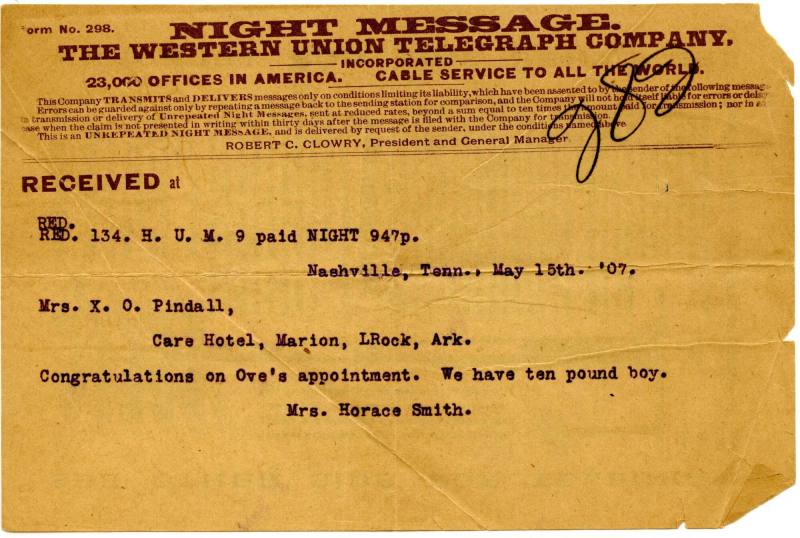 Form No. 298.
NIGHT MESSAGE.
THE WESTERN UNION TELEGRAPH COMPANY.
INCORPORATED
23,000 OFFICES IN AMERICA. CABLE SERVICE TO ALL THE WORLD.
This Company TRANSMITS and DELIVERS messages only on conditions limiting its liability, which have been assented to by the sender of the following message.
Errors can be guarded against only by repeating a message back to the sending station for comparison, and the Company will not hold itself liable for errors or delays
in transmission or delivery of Unrepeated Night Messages, sent at reduced rates, beyond a sum equal to ten times the amount paid for transmission; nor in any
case when the claim is not presented in writing within thirty days after the message is filed with the Company for transmission.
This is an UNREPEATED NIGHT MESSAGE, and is delivered by request of the sender, under the conditions named above.
ROBERT C. CLOWRY, President and General Manager.
RECEIVED at
RED.
RED. 134. H. U. M. 9 paid NIGHT 947p.
Nashville, Tenn., May 15th. '07.
Mrs. X. O. Pindall,
Care Hotel, Marion, LRock, Ark.
Congratulations on Ove's appointment. We have ten pound boy.
Mrs. Horace Smith.